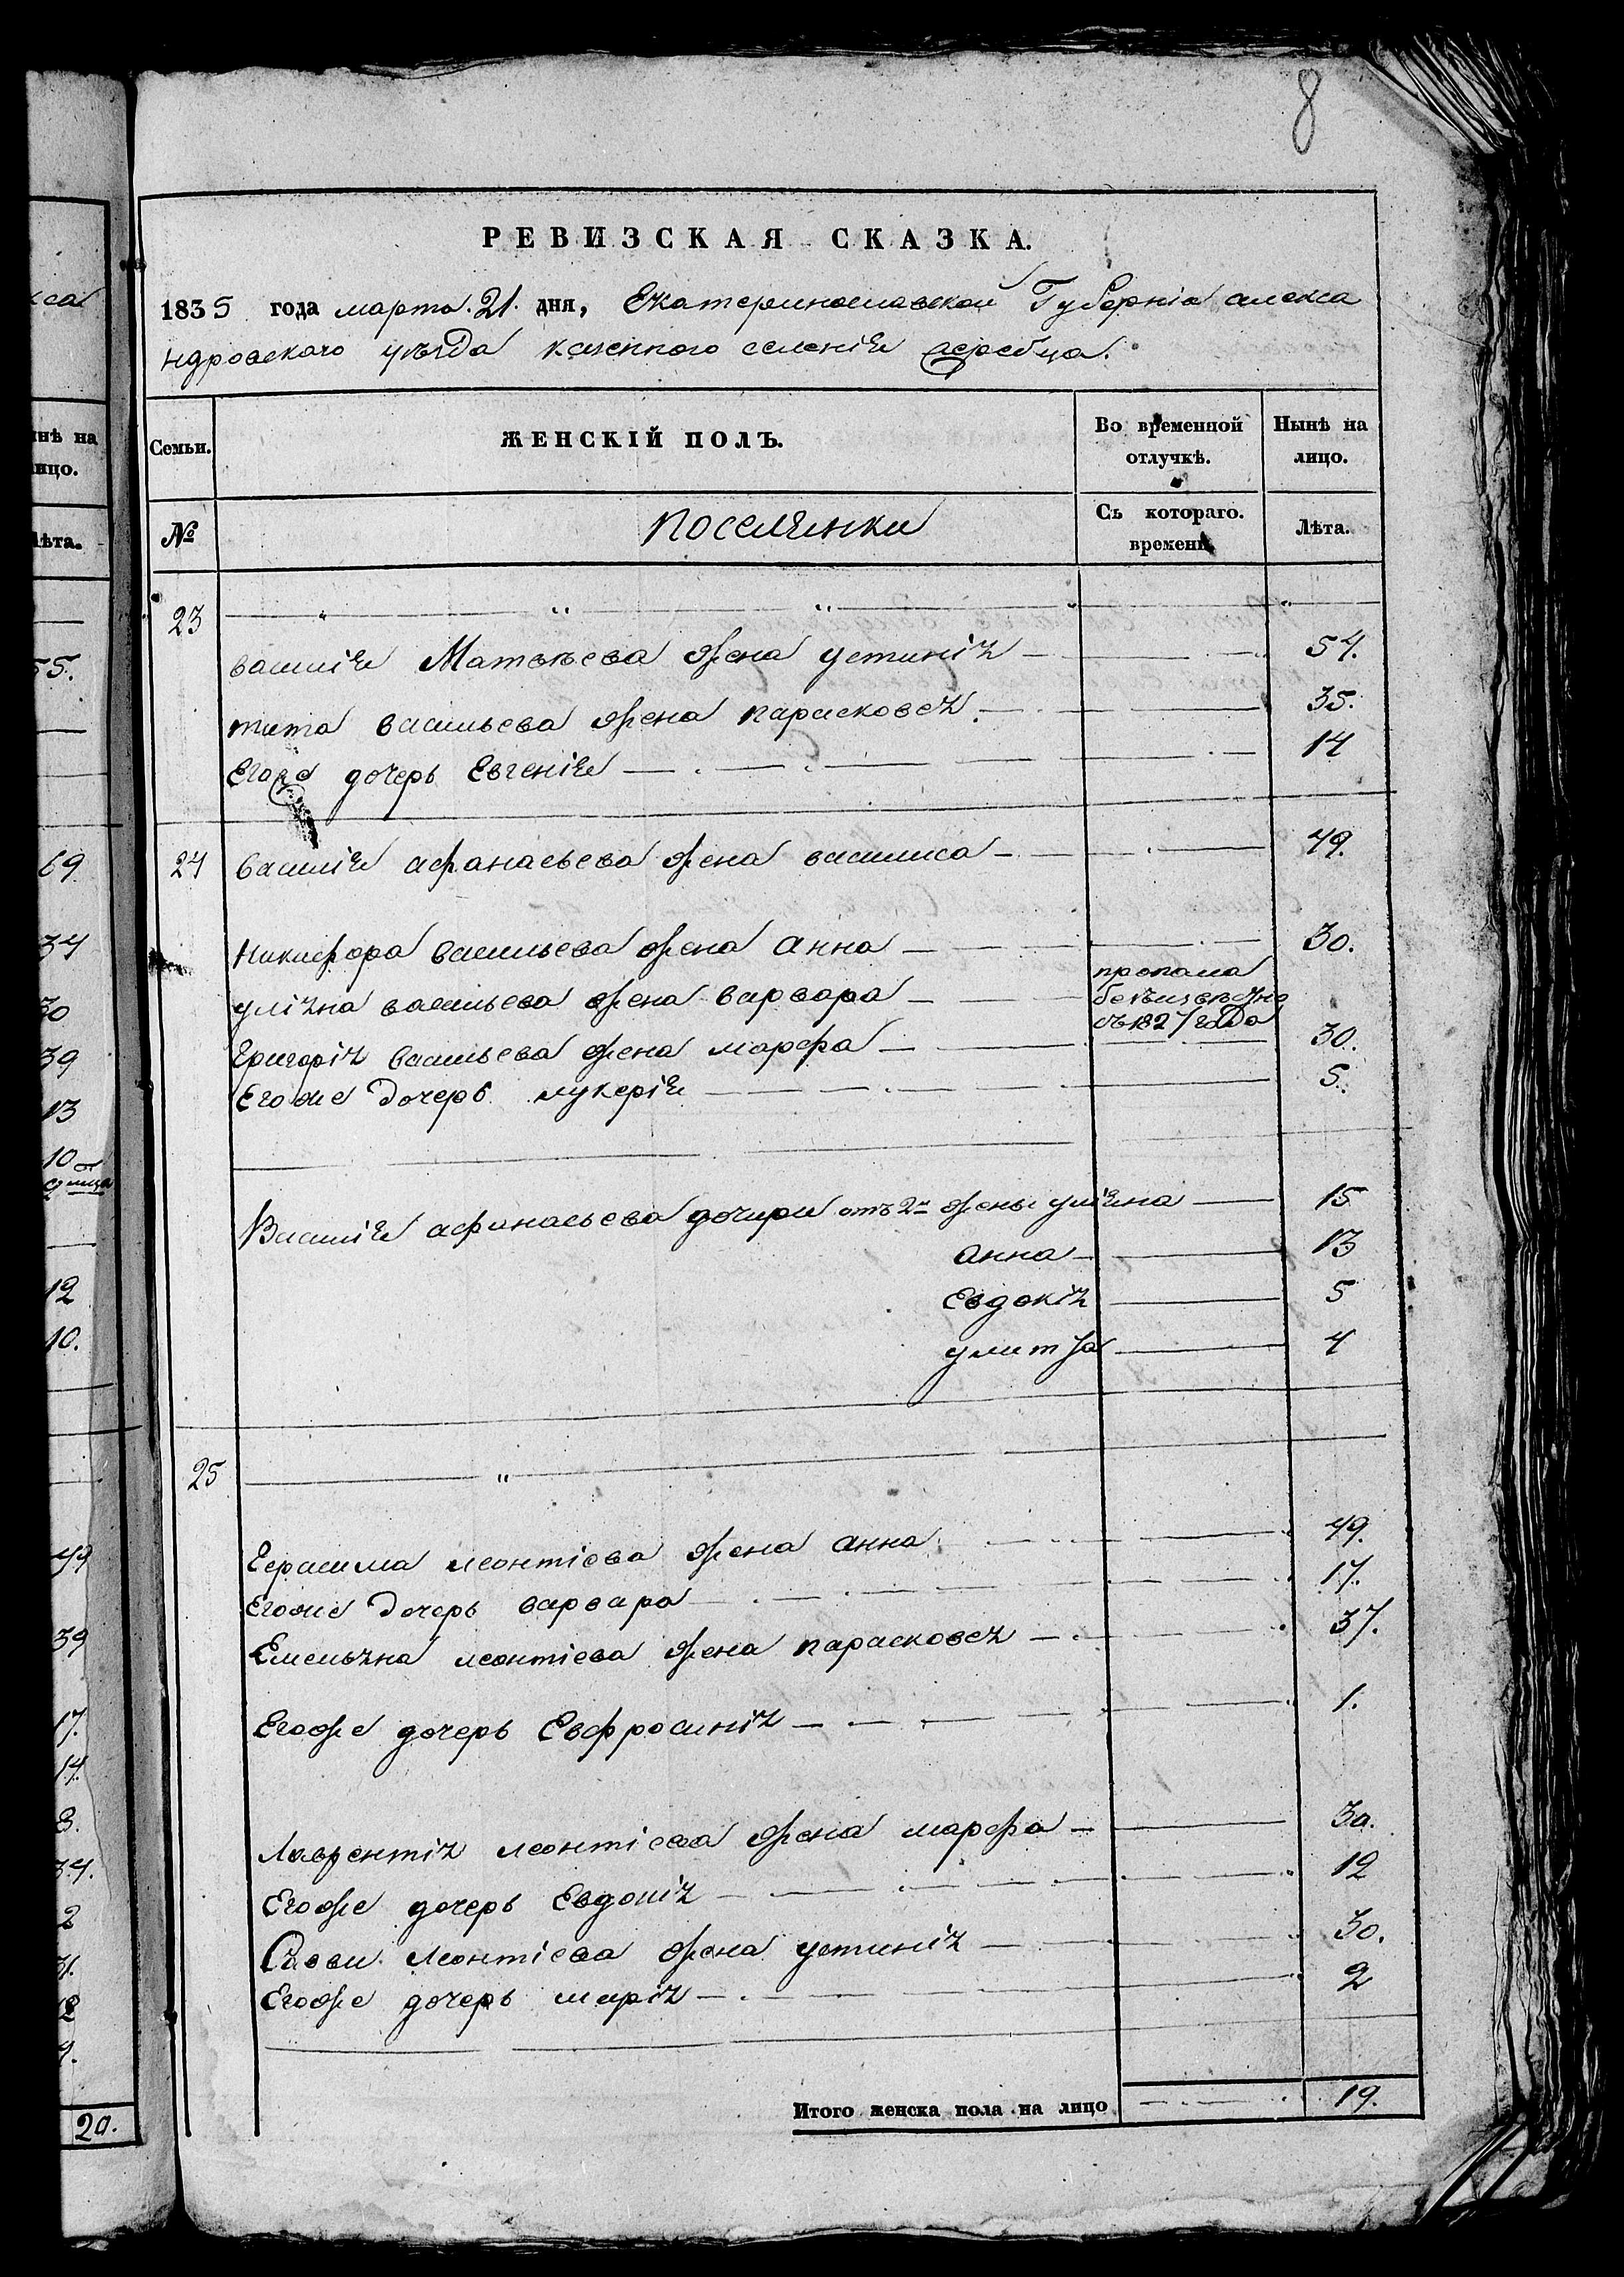 8
РЕВИЗСКАЯ СКАЗКА.
1835 года марта 21. дня, Екатеринославской Губерніи алекса
ндровского уѣзда казенного селенія жеребца.
Семьи.
ЖЕНСКІЙ ПОЛЪ.
Во временной отлучкѣ.
Нынѣ на лицо.
№
поселянки
Съ котораго. времени
Лѣта.
23
василія Матвѣева жена устинія 54.
тита васильева жена парасковея 35.
Егоже дочерь Евгенія 14
24 василія афанасьева жена василиса 49.
Никифора васильева жена анна 30.
уліяна васильева жена варвара пропала безъизвѣжно съ 1827 года
Григорія васильева жена марфа 30.
Егоже дочерь лукерія 5.
Василія афанасьева дочири отъ 2й жены уліяна 15
анна 13
Евдокія 5
улитта 4
25
Герасима леонтіева жена анна 49.
Егоже дочерь варвара 17.
Емельяна леонтіева жена парасковея 37.
Егоже дочерь Евфросинія 1.
Лаврентія леонтіева жена марфа 30.
Егоже дочерь Евдокія 12
Савы леонтіева жена устинія 30.
Егоже дочерь марія 2
Итого женска пола на лицо 19.
ынѣ на
ицо.
Лѣта.
55.
69
34
30
39
13
10
12
10.
49
39
17.
14
3.
34.
2
31.
20.